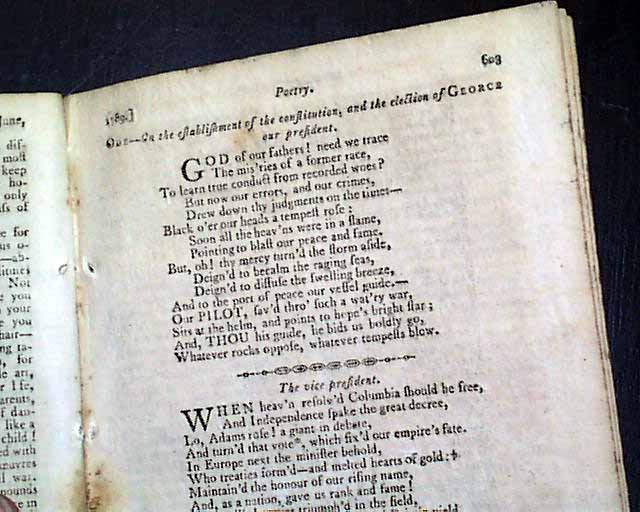 June,
dif-
most
keep
ho-
only
ss of
e for
us o-
—ab-
stitutes
Not
e you
n your
e you
hair—
ng ta-
n, for
le art,
r life,
arents,
f dan-
like a
child!
d with
œuvres
l war.
pounds
e in
1789.] Poetry. 603
ODE—On the eſtabliſhment of the conſtitution, and the election of GEORGE
our preſident.
GOD of our fathers! need we trace
The miſ'ries of a former race,
To learn true conduct from recorded woes?
But now our errors, and our crimes,
Drew down thy judgments on the times—
Black o'er our heads a tempeſt roſe:
Soon all the heav'ns were in a flame,
Pointing to blaſt our peace and fame.
But, oh! thy mercy turn'd the ſtorm aſide,
Deign'd to becalm the raging ſeas,
Deign'd to diffuſe the ſwelling breeze,
And to the port of peace our veſſel guide.—
Our PILOT, ſav'd thro' ſuch a wat'ry war,
Sits at the helm, and points to hope's bright ſtar;
And, THOU his guide, he bids us boldly go,
Whatever rocks oppoſe, whatever tempeſts blow.
The vice preſident.
WHEN heav'n reſolv'd Columbia ſhould be free,
And Independence ſpake the great decree,
Lo, Adams roſe! a giant in debate,
And turn'd that vote*, which fix'd our empire's fate.
In Europe next the miniſter behold,
Who treaties form'd—and melted hearts of gold:†
Maintain'd the honour of our riſing name,
And, as a nation, gave us rank and fame!
triumph'd in the field,